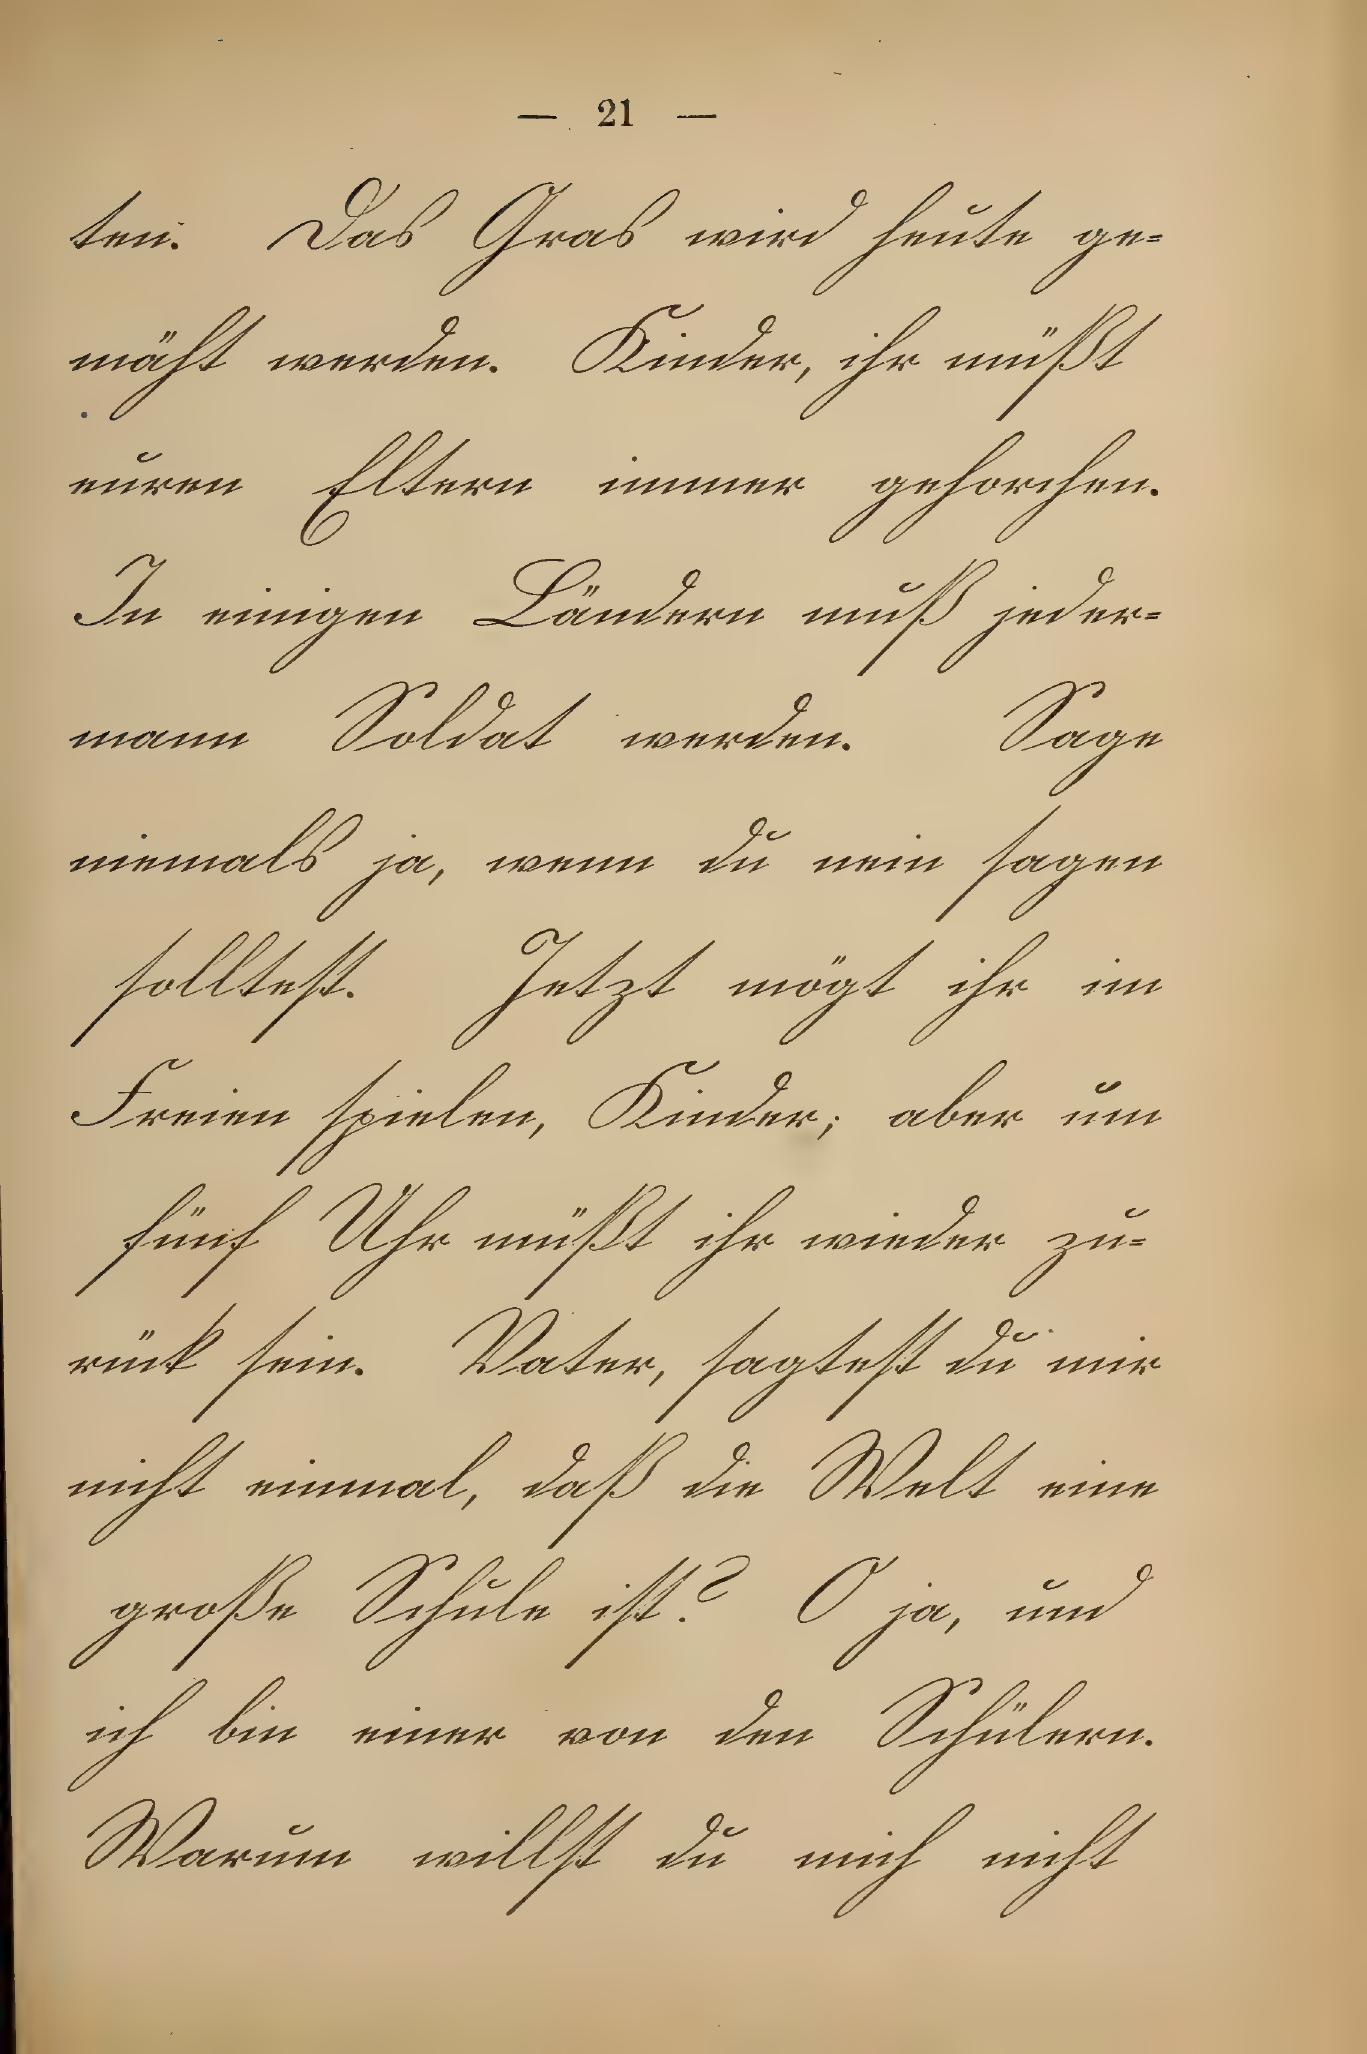 — 21 —
ten. Das Gras wird heute ge=
mäht werden. Kinder, ihr müßt
euren Eltern immer gehorchen.
In einigen Ländern muß jeder=
mann Soldat werden. Sage
niemals ja, wenn du nein sagen
solltest. Jetzt mögt ihr im
Freien spielen, Kinder; aber um
fünf Uhr müßt ihr wieder zu=
rück sein. Vater, sagtest du mir
nicht einmal, daß die Welt eine
große Schule ist? O ja, und
ich bin einer von den Schülern.
Warum willst du mich nicht